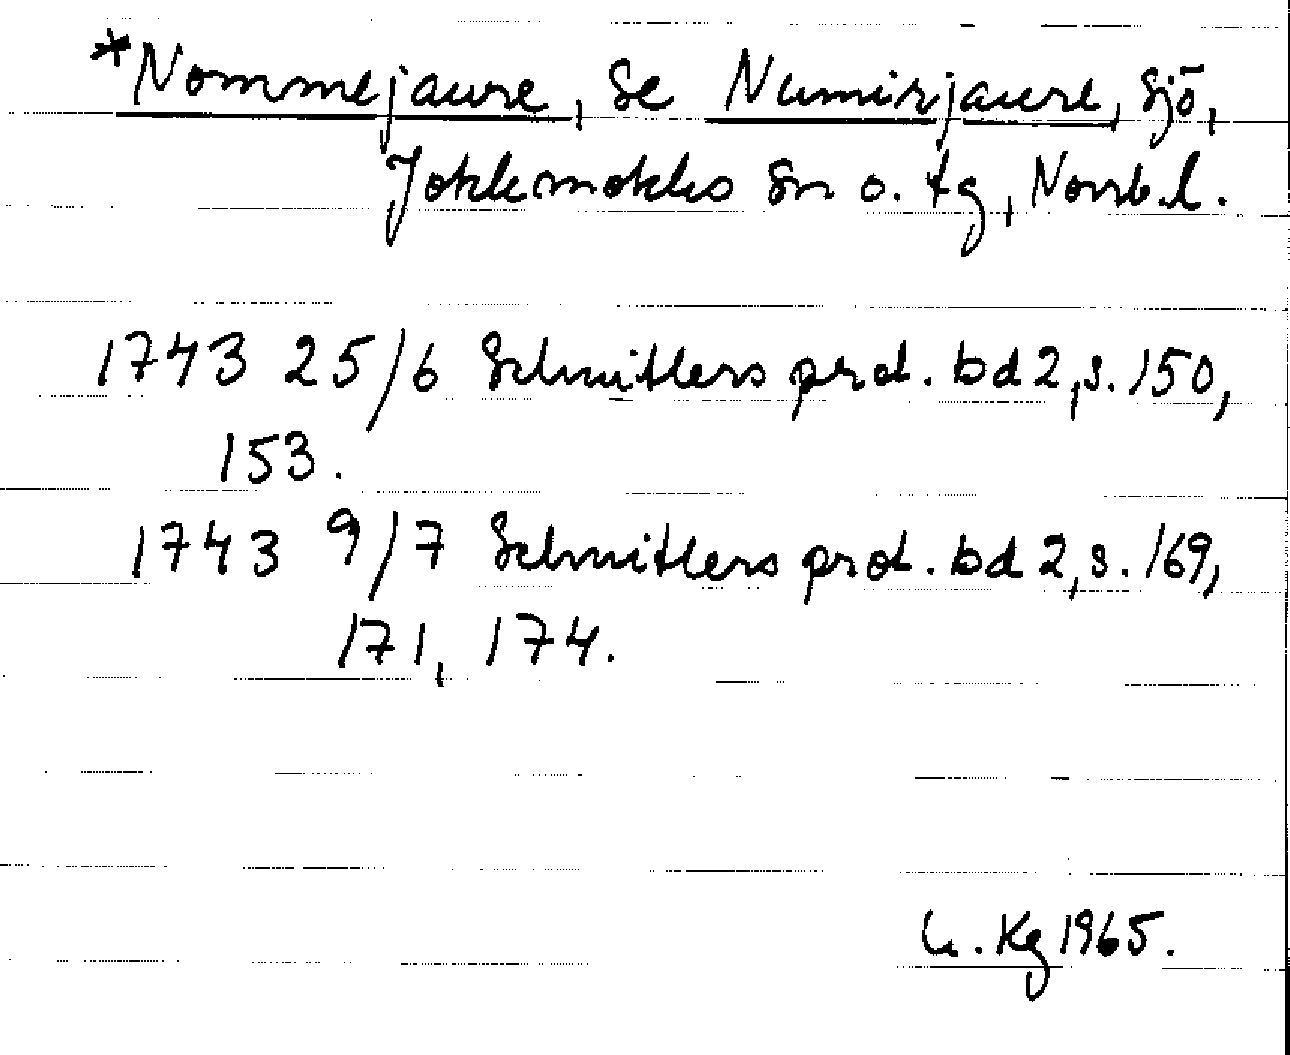 *Nommejaure, se Numirjaure, sjö,
Jokkmokks sn o. tg, Norrb.l.
1743 25/6 Schnitlers prot. bd 2, s. 150,
153.
1743 9/7 Schnitlers prot. bd 2, s. 169,
171, 174.
Kg 1965.